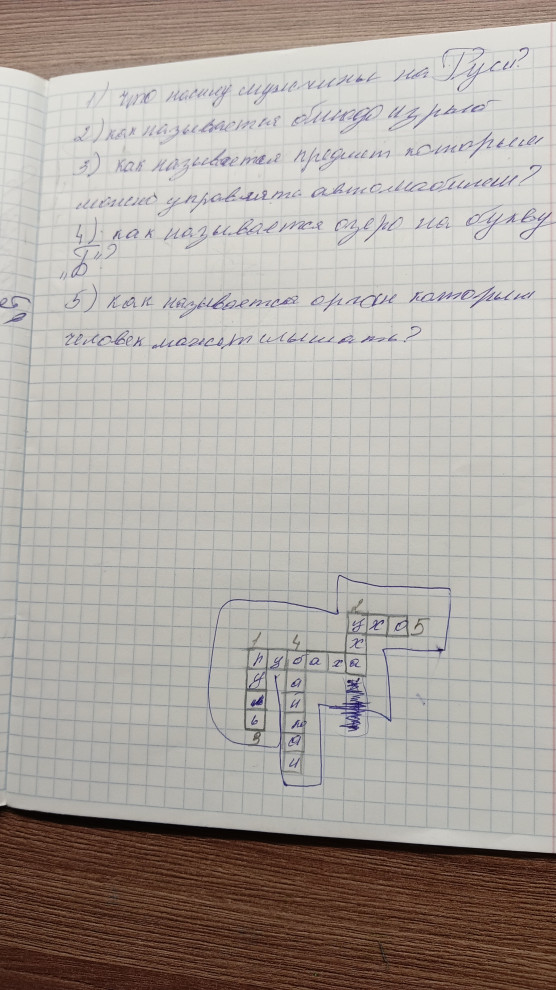 1) что носили мужчины на Руси?
2) как называется блюдо из рыб
3) как называется предмет которым
можно управлять автомабилем?
4) как называется озеро на букву
„Б"?
5) как называется орган которым
человек может слышать?
2
у х о 5
1 4 х
р у б а х а
у а
л й
ь к
3 а
л